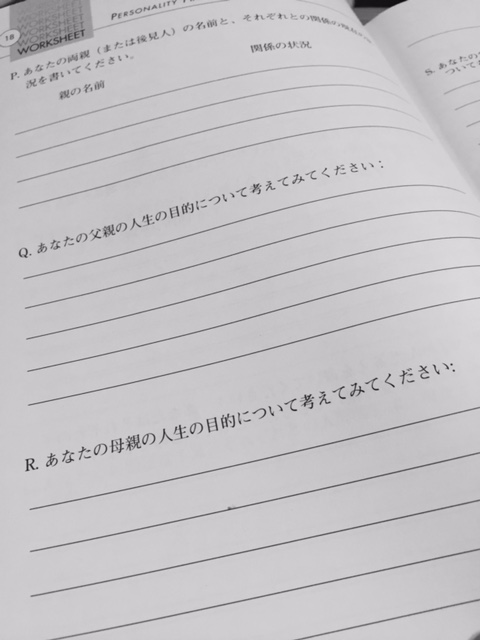 18
WORKSHEET
PERSONALITY
P. あなたの両親（または後見人）の名前と、それぞれとの関係の現在の状
況を書いてください。
親の名前
関係の状況
Q. あなたの父親の人生の目的について考えてみてください：
R. あなたの母親の人生の目的について考えてみてください:
S. あなたの
ついて